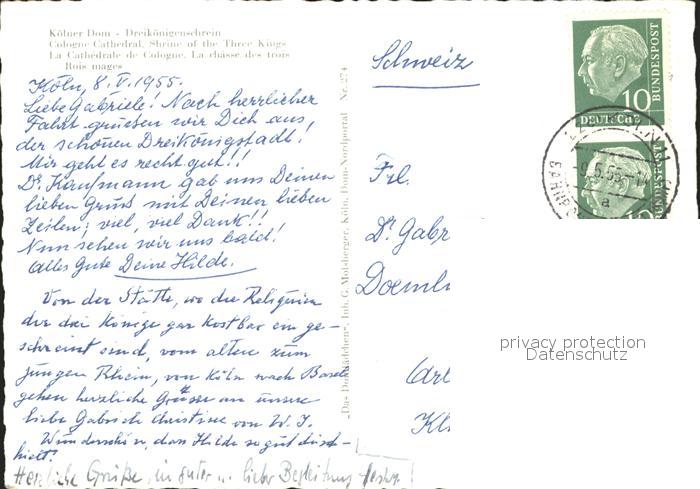 Kölner Dom - Dreikönigenschrein
Cologne Cathedral, Shrine of the Three Kings
La Cathédrale de Cologne. La châsse des trois
Rois mages
Köln, 8. V. 1955.
Liebe Gabriele! Nach herrlicher
Fahrt grüssen wir Dich aus
der schönen Dreikönigstadt!
Mir geht es recht gut!!
Dr. Kaufmann gab uns Deinen
lieben Gruß mit Deinen lieben
Zeilen; viel, viel Dank!!
Nun sehen wir uns bald!
Alles Gute Deine Hilde.
Von der Stätte, wo die
der drei Könige gar kostbar ein ge-
schreint sind, vom alten zum
jungen Rhein, von Köln nach Basel
gehen herzliche Grüsse an unsre
liebe Gabriele von
Wunderschön, dass Hilde so gut durch-
hielt!
Herzliche Grüße, in guter lieber Begleitung
"Das Domlädchen", Inh. C. Molsberger, Köln, Dom-Nordportal Nr. 274
Schweiz
Frl.
Dr. Gabr
Arl
Kl
10
DEUTSCHE
BUNDESPOST
10
BUNDESPOST
-9.5.55
a
BAHNPO
privacy protection
Datenschutz